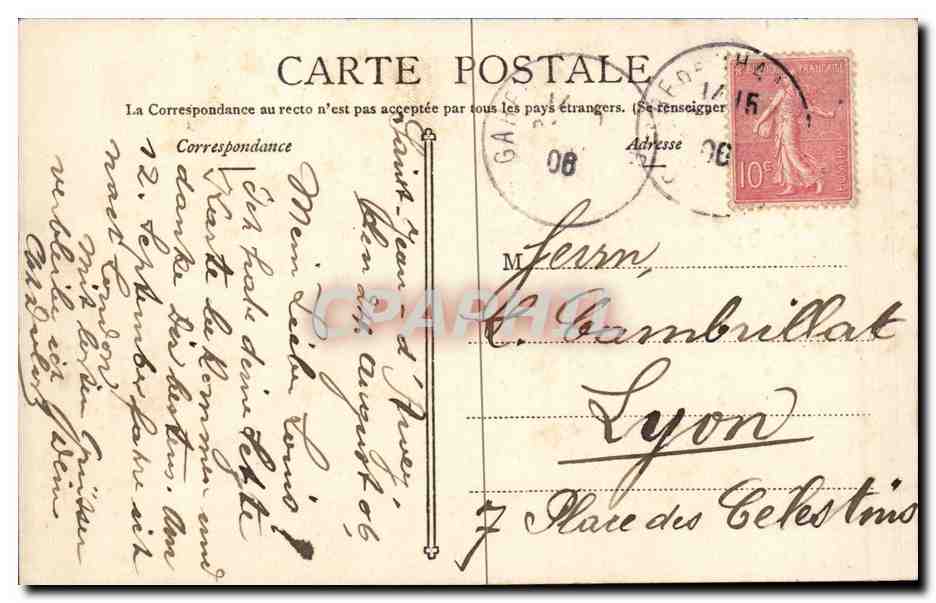 CARTE POSTALE
La Correspondance au recto n'est pas acceptée par tous les pays étrangers. (Se renseigner
Correspondance
Adresse
GARE
14
06
14 15
06
FRANÇAISE
10c
POSTES
Saint-Jean-d'Avey
den 24 August 06,
Mein Lieber Louis!
Ich habe deine letzte
Karte bekommen und
danke dir bestens. Am
12. September fahre ich
nach London
Mit besten Grüssen
verbleibe ich Dein
M
Herrn,
C. Cambrillat
Lyon
7 Place des Celestins
CPAPHIL